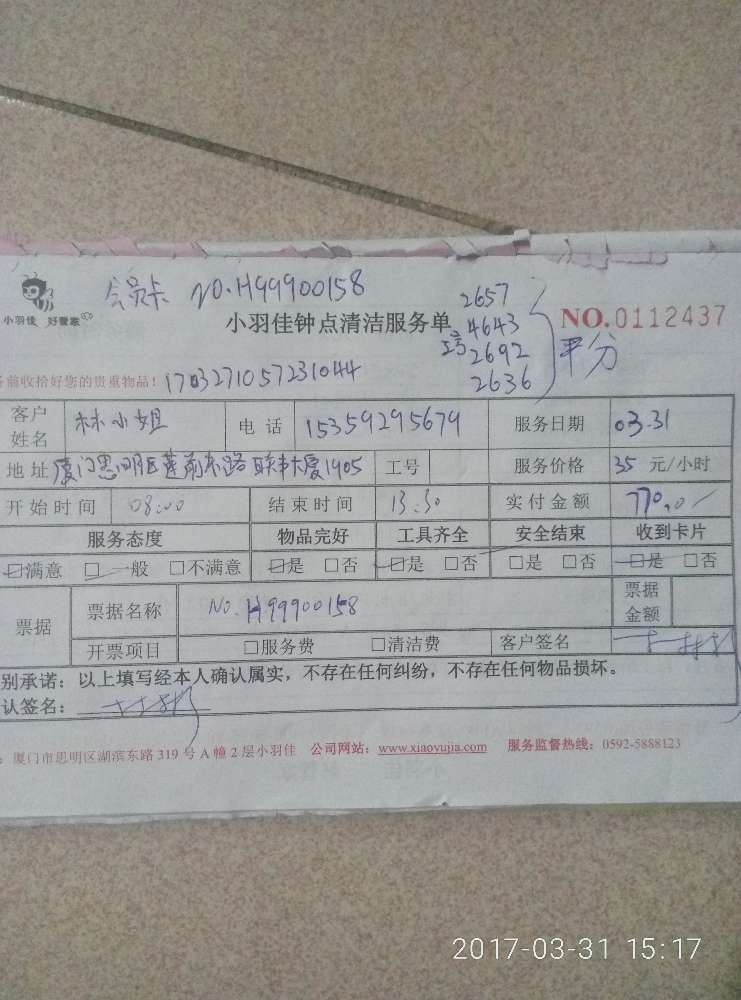 会员卡 NO.H99900158
小羽佳 好管家
小羽佳钟点清洁服务单
2657
4643
工号 2692
2636
平分
NO.0112437
前收拾好您的贵重物品！ 1703271057231044
客户姓名 林小姐 电话 15359295679 服务日期 03.31
地址 厦门思明区莲前东路联丰大厦1905 工号 服务价格 35 元/小时
开始时间 08:00 结束时间 13.30 实付金额 770.0
服务态度 物品完好 工具齐全 安全结束 收到卡片
☑满意 □一般 □不满意 ☑是 □否 ☑是 □否 □是 □否 ☑是 □否
票据 票据名称 NO.H99900158 票据金额
开票项目 □服务费 □清洁费 客户签名
别承诺：以上填写经本人确认属实，不存在任何纠纷，不存在任何物品损坏。
认签名：
：厦门市思明区湖滨东路 319 号 A 幢 2 层小羽佳 公司网站：www.xiaoyujia.com 服务监督热线：0592-5888123
2017-03-31 15:17